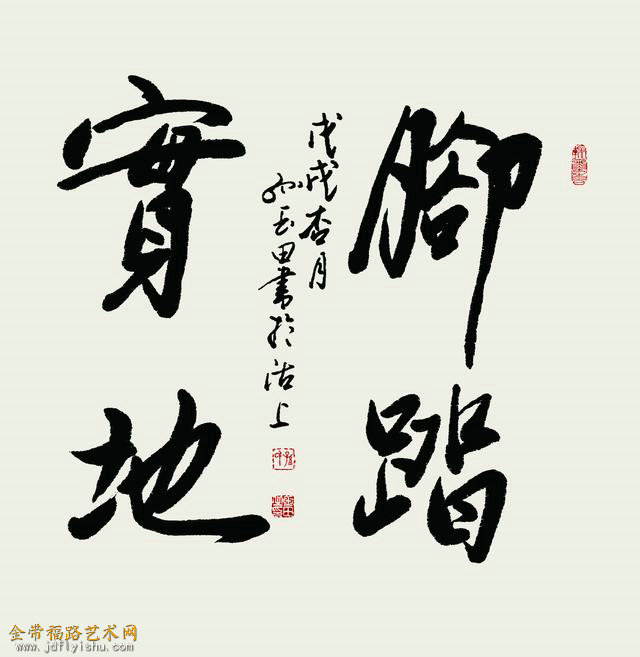 腳踏
實地
戊戌杏月
孙玉田書於沽上
金带福路艺术网
www.jdflyishu.com